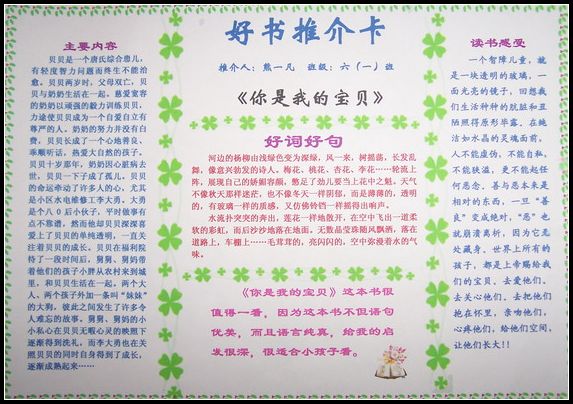 好书推介卡
推介人：熊一凡  班级：六（一）班
《你是我的宝贝》
主要内容
贝贝是一个唐氏综合患儿，
有轻度智力问题而终生不能治
愈。贝贝两岁时，父母双亡，贝
贝与奶奶生活在一起。慈爱宽容
的奶奶以顽强的毅力训练贝贝，
力途使贝贝成为一个自爱自立有
尊严的人。奶奶的努力并没有白
费，贝贝长成了一个心地善良、
乖顺听话，热爱大自然的孩子。
贝贝十多那年，奶奶因心脏病去
世，贝贝一下子成了孤儿。贝贝
的命运牵动了许多人的心，尤其
是小区水电维修工李大勇，大勇
是个八０后小伙子，平时做事有
点不靠谱，然而他却贝贝深深喜
爱上了贝贝的单纯透明，一直关
注着贝贝的成长。贝贝在福利院
待了一段时间后，舅舅、舅妈带
着他们的孩子小胖从农村来到城
里，和贝贝生活在一起。两个大
人、两个孩子外加一条叫“妹妹”
的大狗，彼此之间发生了许多令
人难忘的故事。舅舅、舅妈的小
小私心在贝贝无暇心灵的映照下
逐渐得到洗礼，而李大勇也在关
照贝贝的同时自身得到了成长，
逐渐成熟起来……
好词好句
河边的杨柳由浅绿色变为深绿，风一来，树摇荡，长发乱
舞，像意兴勃发的诗人。梅花、桃花、杏花、李花……轮流上
阵，展现自己的娇媚容颜，憋足了劲儿要当上花中之魁。天气
不像秋天那样迷茫，也不像冬天一样阴郁，而是薄薄的，透明
的，有玻璃一样的质感，又仿佛铃铛一样摇得出响声。
水流扑突突的奔出，莲花一样地散开，在空中飞出一道柔
软的彩虹，而后沙沙地落在地面。无数晶莹珠随风飘洒，落在
道路上，车棚上……毛茸茸的，亮闪闪的，空中弥漫着水的气
味。
《你是我的宝贝》这本书很
值得一看，因为这本书不但语句
优美，而且语言纯真，给我的启
发很深，很适合小孩子看。
读书感受
一个智障儿童，就
是一块透明的玻璃，一
面光亮的镜子，回照我
们生活种种的肮脏和丑
陋照得原形毕露。在纯
洁如水晶的灵魂面前，
人不能虚伪，不能自私，
不能狭溢，更不能起任
何恶念。善与恶本来是
相对的东西，一旦“善
良”变成绝对，“恶”也
就崩溃离析，因为它无
处藏身。世界上所有的
孩子，都是上帝赐给我
们的宝贝、去爱他们、
去关心他们、去把他们
抱在怀里，亲吻他们，
心疼他们，给他们空间，
让他们长大！！